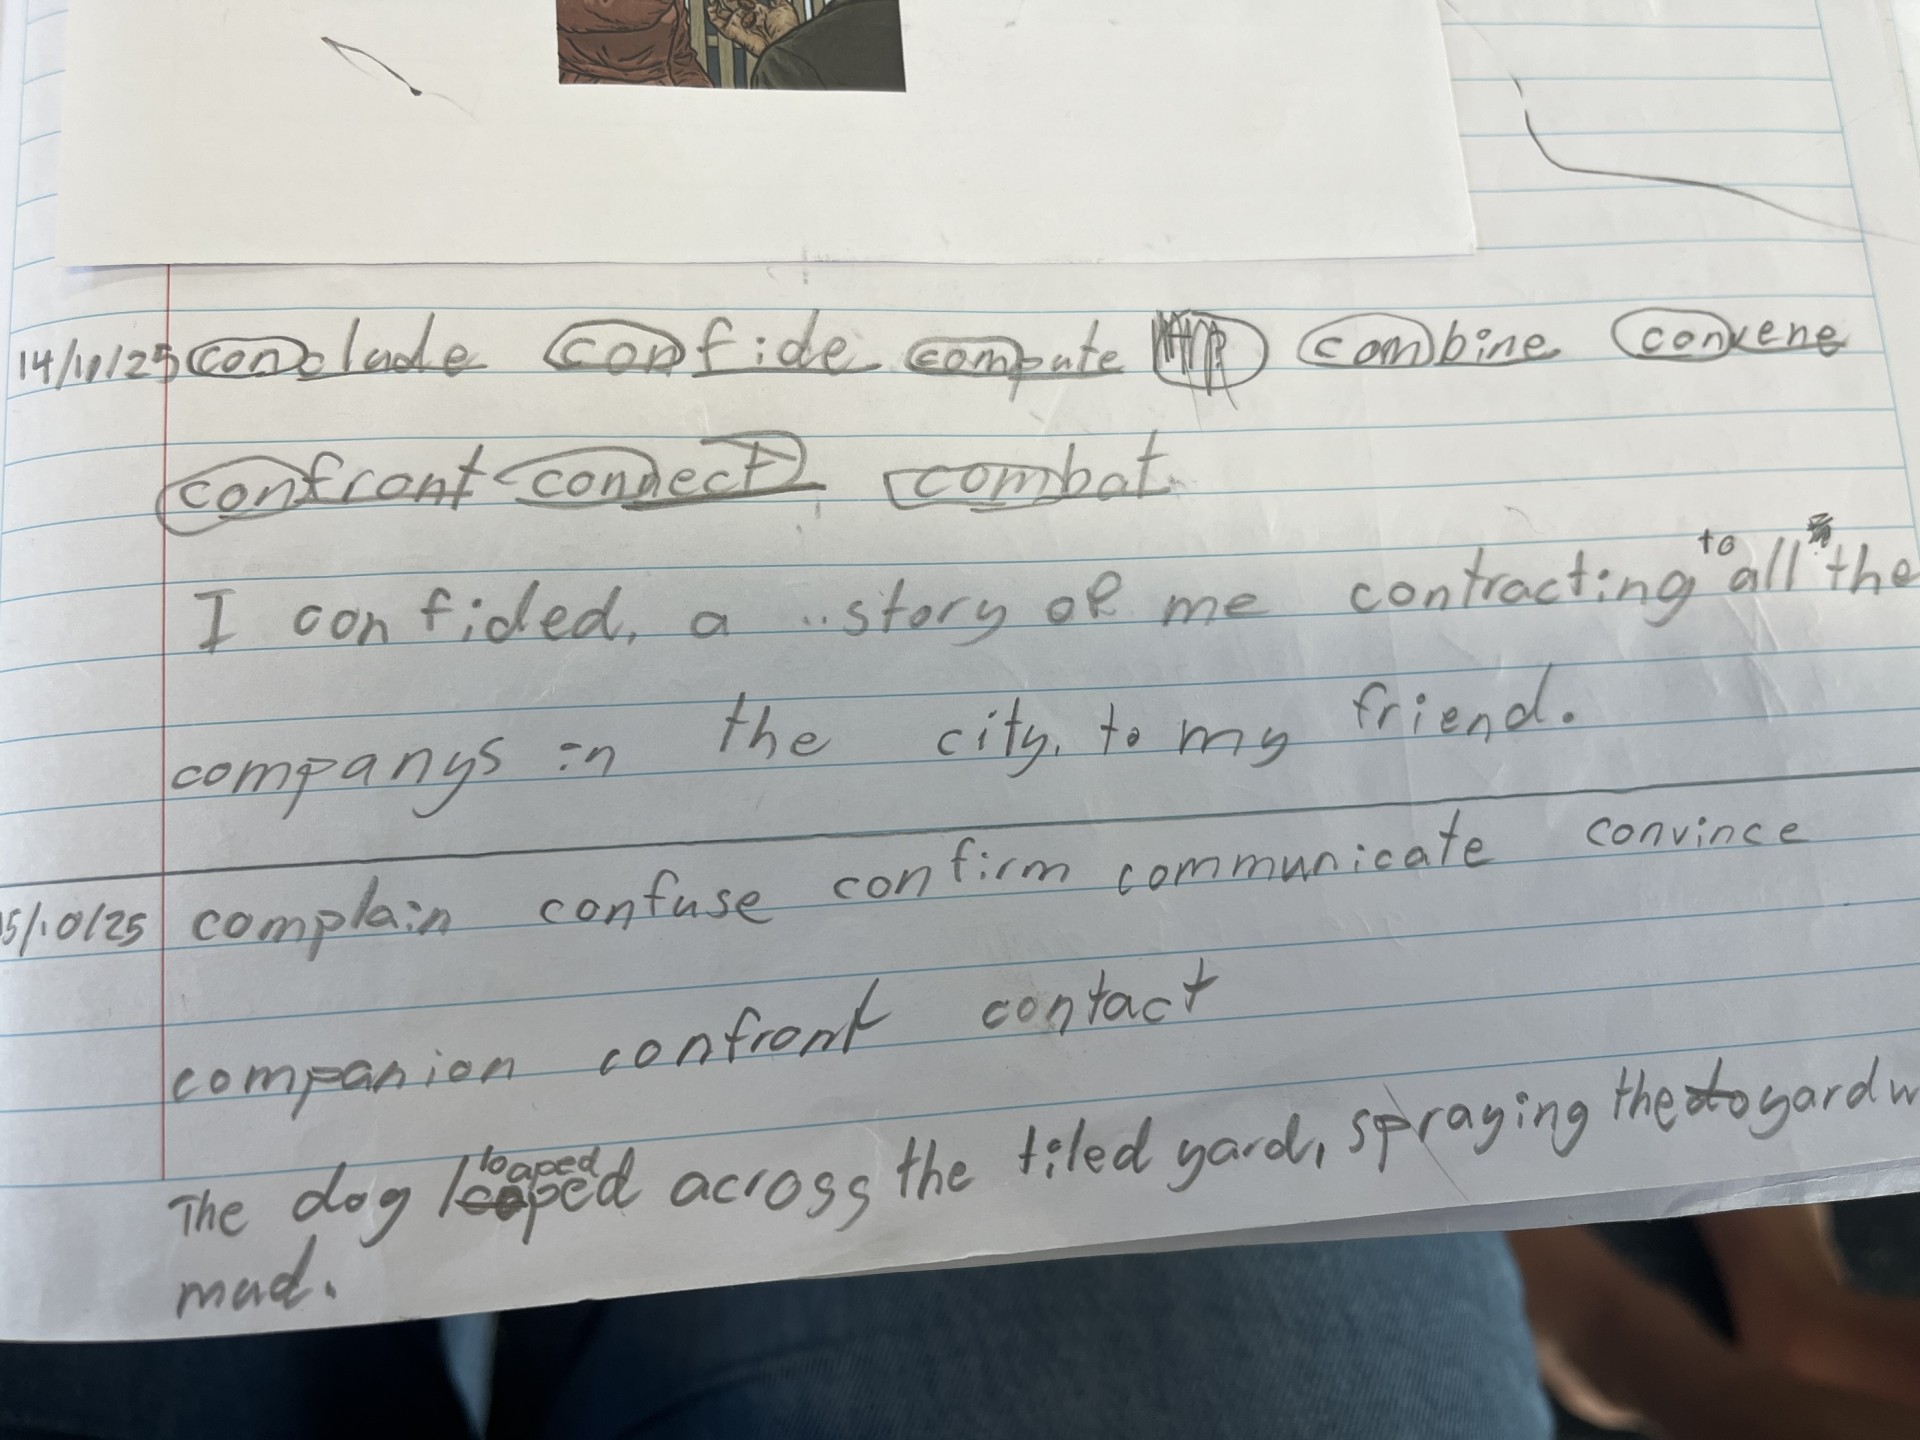 14/11/25 conclude confide compute combine convene
confront connect combat
I confided, a story of me contracting to all the
companys in the city, to my friend.
5/10/25 complain confuse confirm communicate convince
companion confront contact
The dog loaped across the tiled yard, spraying the yard w
mud.